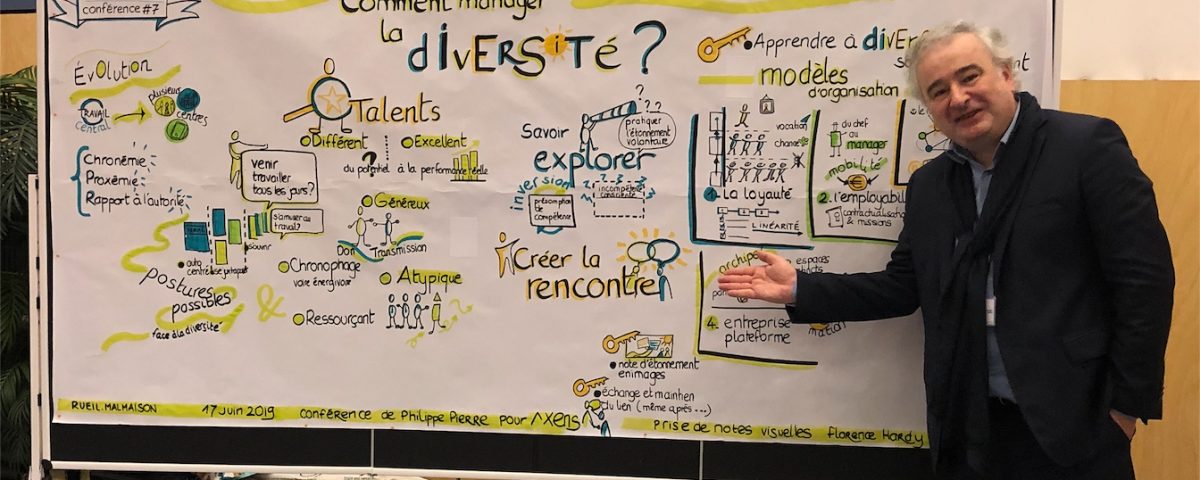 conférence #7
Comment manager
la diversité ?
Évolution
TRAVAIL
central
plusieurs
centres
Chronémie
Proxémie
Rapport à l'autorité
Talents
Différent
Excellent
du potentiel à la performance réelle
?
venir
travailler
tous les jours?
s'amuser au
travail?
ouvrir
auto
centré
Généreux
Don
Transmission
Chronophage
voire énergivore
Atypique
Ressourçant
postures
possibles
face à la diversité
&
Savoir
explorer
? ? ?
pratiquer
l'étonnement
volontaire
inversion
présomption
de compétence
incompétence
Créer la
rencontre
note d'étonnement
en images
échange et maintien
du lien (même après...)
Apprendre à
modèles
d'organisation
vocation
chance
La loyauté
LINÉARITÉ
du chef
au
manager
mobilité
2. l'employab
contractualisat
& missions
archip
espaces
4. entreprise
plateforme
RUEIL.MALMAISON 17 juin 2019 conférence de Philippe Pierre pour Axens
prise de notes visuelles Florence Hardy